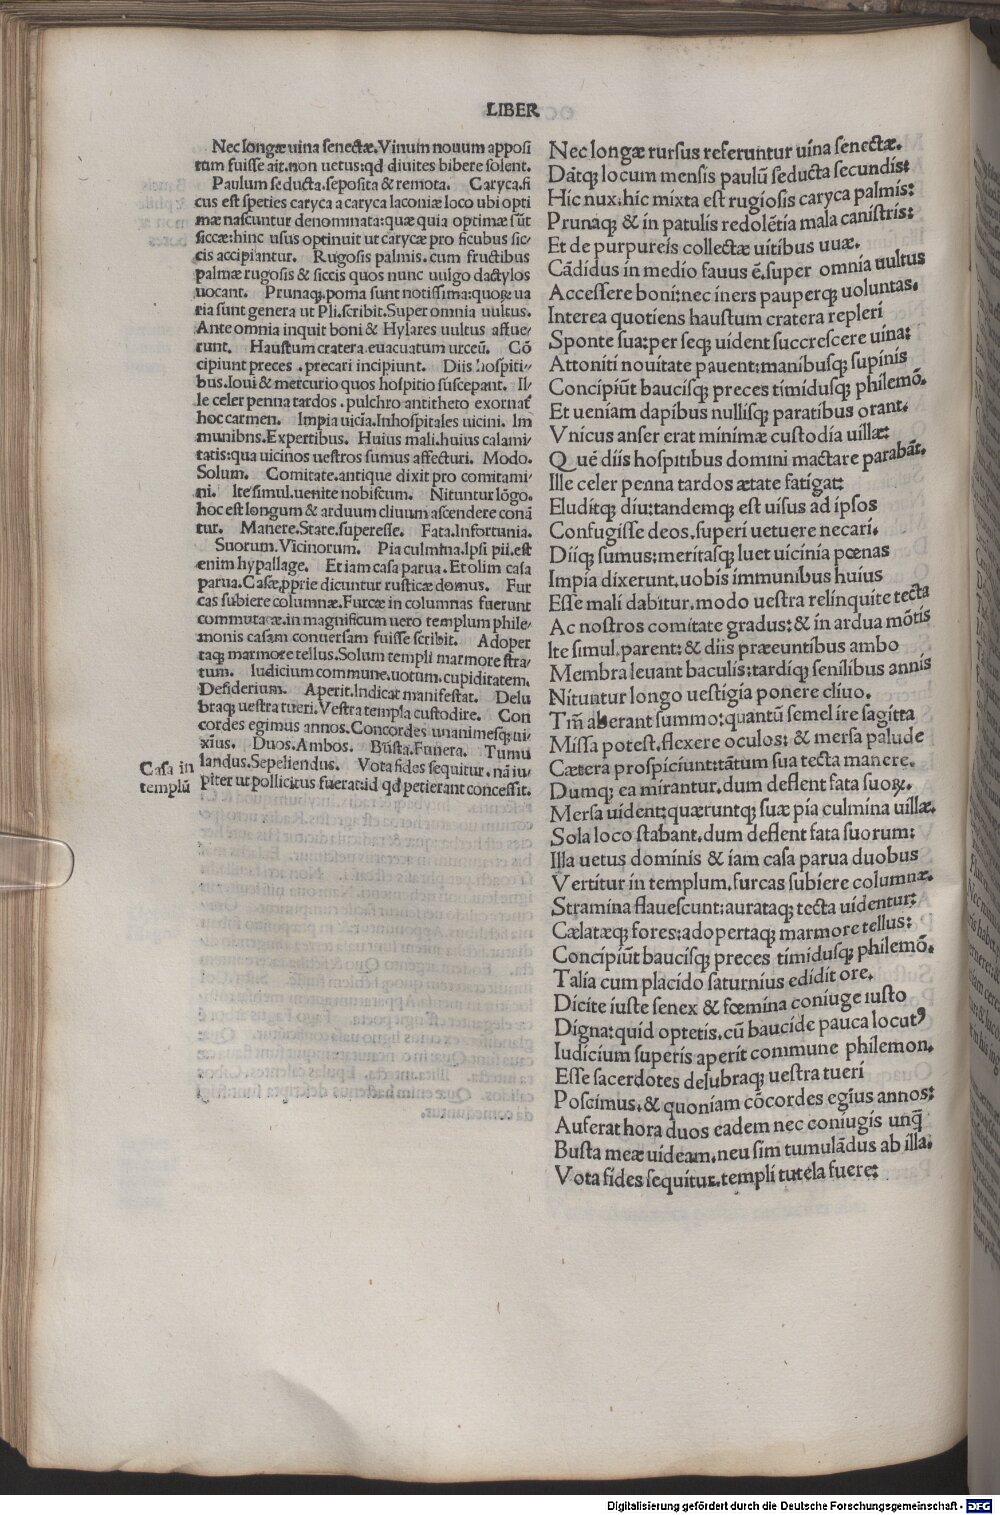 LIBER
Nec longæ uina senectæ. Vinum nouum apposi
tum fuisse ait. non uetus: qd diuites bibere solent.
Paulum seducta. seposita & remota. Caryca. fi
cus est speties caryca a caryca laconiæ loco ubi opti
mæ nascuntur denominata: quæ quia optimæ sũt
siccæ: hinc usus optinuit ut carycæ pro ficubus sic/
cis accipiantur. Rugosis palmis. cum fructibus
palmæ rugosis & siccis quos nunc uulgo dactylos
uocant. Prunaqꝫ poma sunt notissima: quoꝝ ua
ria sunt genera ut Pli. scribit. Super omnia uultus.
Ante omnia inquit boni & Hylares uultus affue/
runt. Haustum cratera. euacuatum urceũ. Cõ
cipiunt preces . precari incipiunt. Diis hospiti/
bus. Ioui & mercurio quos hospitio susceperant. Il/
le celer penna tardos . pulchro antitheto exornat̃
hoc carmen. Impia uicĩa. Inhospitales uicini. Im
munibns. Expertibus. Huius mali. huius calami/
tatis: qua uicinos uestros sumus affecturi. Modo.
Solum. Comitate. antique dixit pro comitami/
ni. Ite simul. uenite nobiscum. Nituntur lõgo.
hoc est longum & arduum cliuum ascendere conã
tur. Manere. Stare. superesse. Fata. Infortunia.
Suorum. Vicinorum. Pia culmina. Ipsi pii. est
enim hypallage. Et iam casa parua. Et olim casa
parua. Casæ ꝓprie dicuntur rusticæ domus. Fur
cas subiere columnæ. Furcæ in columnas fuerunt
commutatæ. in magnificum uero templum phile/
monis casam conuersam fuisse scribit. Adoper
taqꝫ marmore tellus. Solum templi marmore stra/
tum. Iudicium commune. uotum. cupiditatem.
Desiderium. Aperit. Indicat manifestat. Delu
braqꝫ uestra tueri. Vestra templa custodire. Con
cordes egimus annos. Concordes unanimesqꝫ ui/
xĩus. Duos. Ambos. Busta. Funera. Tumu
landus. Sepeliendus. Vota fides sequitur. nã iu/
piter ut pollicitus fuerat: id qd petierant concessit.
Casa in
templũ
Nec longæ rursus referuntur uina senectæ.
Dãtqꝫ locum mensis paulũ seducta secundis:
Hic nux. hic mixta est rugiosis caryca palmis:
Prunaqꝫ & in patulis redolẽtia mala canistris:
Et de purpureis collectæ uitibus uuæ.
Cãdidus in medio fauus ẽ. super omnia uultus
Accessere boni: nec iners pauperqꝫ uoluntas.
Interea quotiens haustum cratera repleri
Sponte sua: per seqꝫ uident succrescere uina:
Attoniti nouitate pauent: manibusqꝫ supinis
Concipiũt baucisqꝫ preces timidusqꝫ philemõ.
Et ueniam dapibus nullisqꝫ paratibus orant.
Vnicus anser erat minimæ custodia uillæ:
Quẽ diis hospitibus domini mactare parabãt.
Ille celer penna tardos ætate fatigat:
Eluditqꝫ diu: tandemqꝫ est uisus ad ipsos
Confugisse deos. superi uetuere necari.
Diiqꝫ sumus: meritasqꝫ luet uicinia pœnas
Impia dixerunt. uobis immunibus huius
Esse mali dabitur. modo uestra relinquite tecta
Ac nostros comitate gradus: & in ardua mõtis
Ite simul. parent: & diis præeuntibus ambo
Membra leuant baculis: tardiqꝫ senilibus annis
Nituntur longo uestigia ponere cliuo.
Tm̃ aberant summo: quantũ semel ire sagitta
Missa potest. flexere oculos: & mersa palude
Cætera prospiciunt: tãtum sua tecta manere.
Dumqꝫ ea mirantur. dum deflent fata suoꝝ.
Mersa uident: quæruntqꝫ suæ pia culmina uillæ.
Sola loco stabant. dum deflent fata suorum:
Illa uetus dominis & iam casa parua duobus
Vertitur in templum. furcas subiere columnæ.
Stramina flauescunt: aurataqꝫ tecta uidentur:
Cælatæqꝫ fores: adopertaqꝫ marmore tellus:
Concipiũt baucisqꝫ preces timidusqꝫ philemõ.
Talia cum placido saturnius edidit ore.
Dicite iuste senex & fœmina coniuge iusto
Digna: quid optetis. cũ baucide pauca locutꝰ
Iudicium superis aperit commune philemon.
Esse sacerdotes delubraqꝫ uestra tueri
Poscimus. & quoniam cõcordes egĩus annos:
Auferat hora duos eadem nec coniugis unq̃
Busta meæ uideam. neu sim tumulãdus ab illa.
Vota fides sequitur. templi tutela fuere:
Digitalisierung gefördert durch die Deutsche Forschungsgemeinschaft - DFG